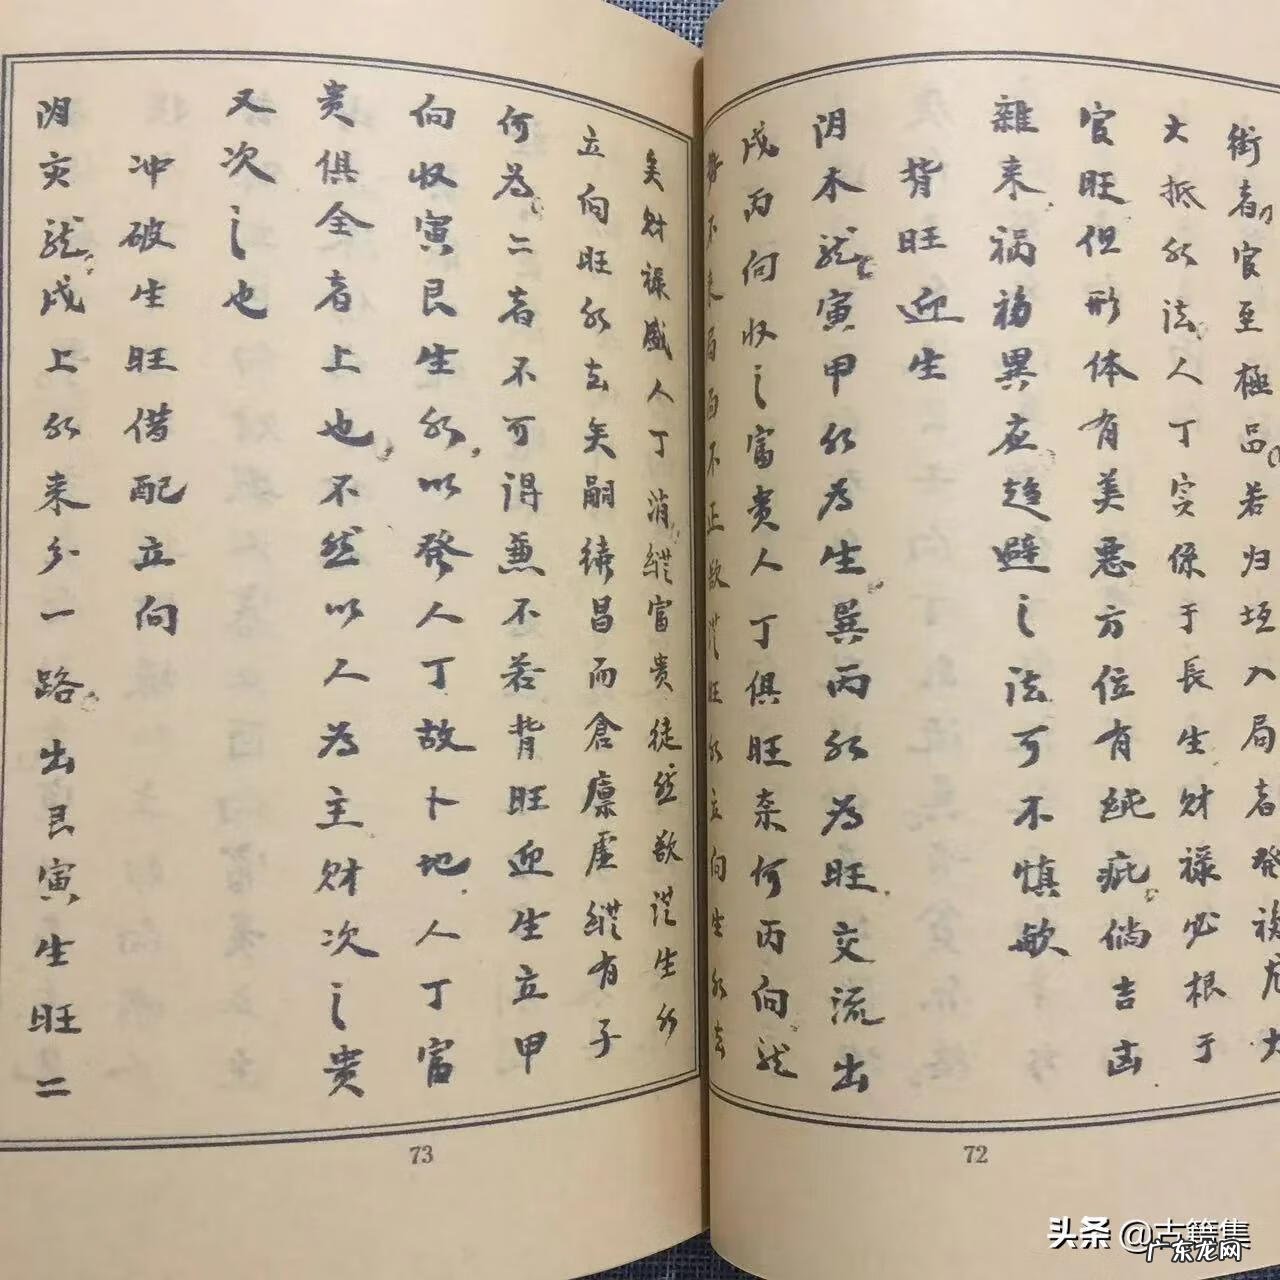 街者官至極品若归垣入局者發福尤大
大抵水法人丁实係于長生财禄必根于
官旺但形体有美惡方位有純疵倘吉凶
雜来祸福異应趋避之法可不慎歟
背旺迎生
阴木龙寅甲水为生巽丙水为旺交流出
戌丙向收之富贵人丁俱旺奈何丙向龙
不来局而不正欲従旺水立向生水去
矣财禄盛人丁消縱富贵徒然欲従生水
立向旺水去矣嗣续昌而倉廪虚縱有子
何为二者不可得兼不若背旺迎生立甲
向收寅艮生水以發人丁故卜地人丁富
贵俱全者上也不然以人为主财次之贵
又次之也
冲破生旺借配立向
阴亥龙戌上水来分一路出艮寅生旺二
73
72
头条 @古籍集
广东龙网